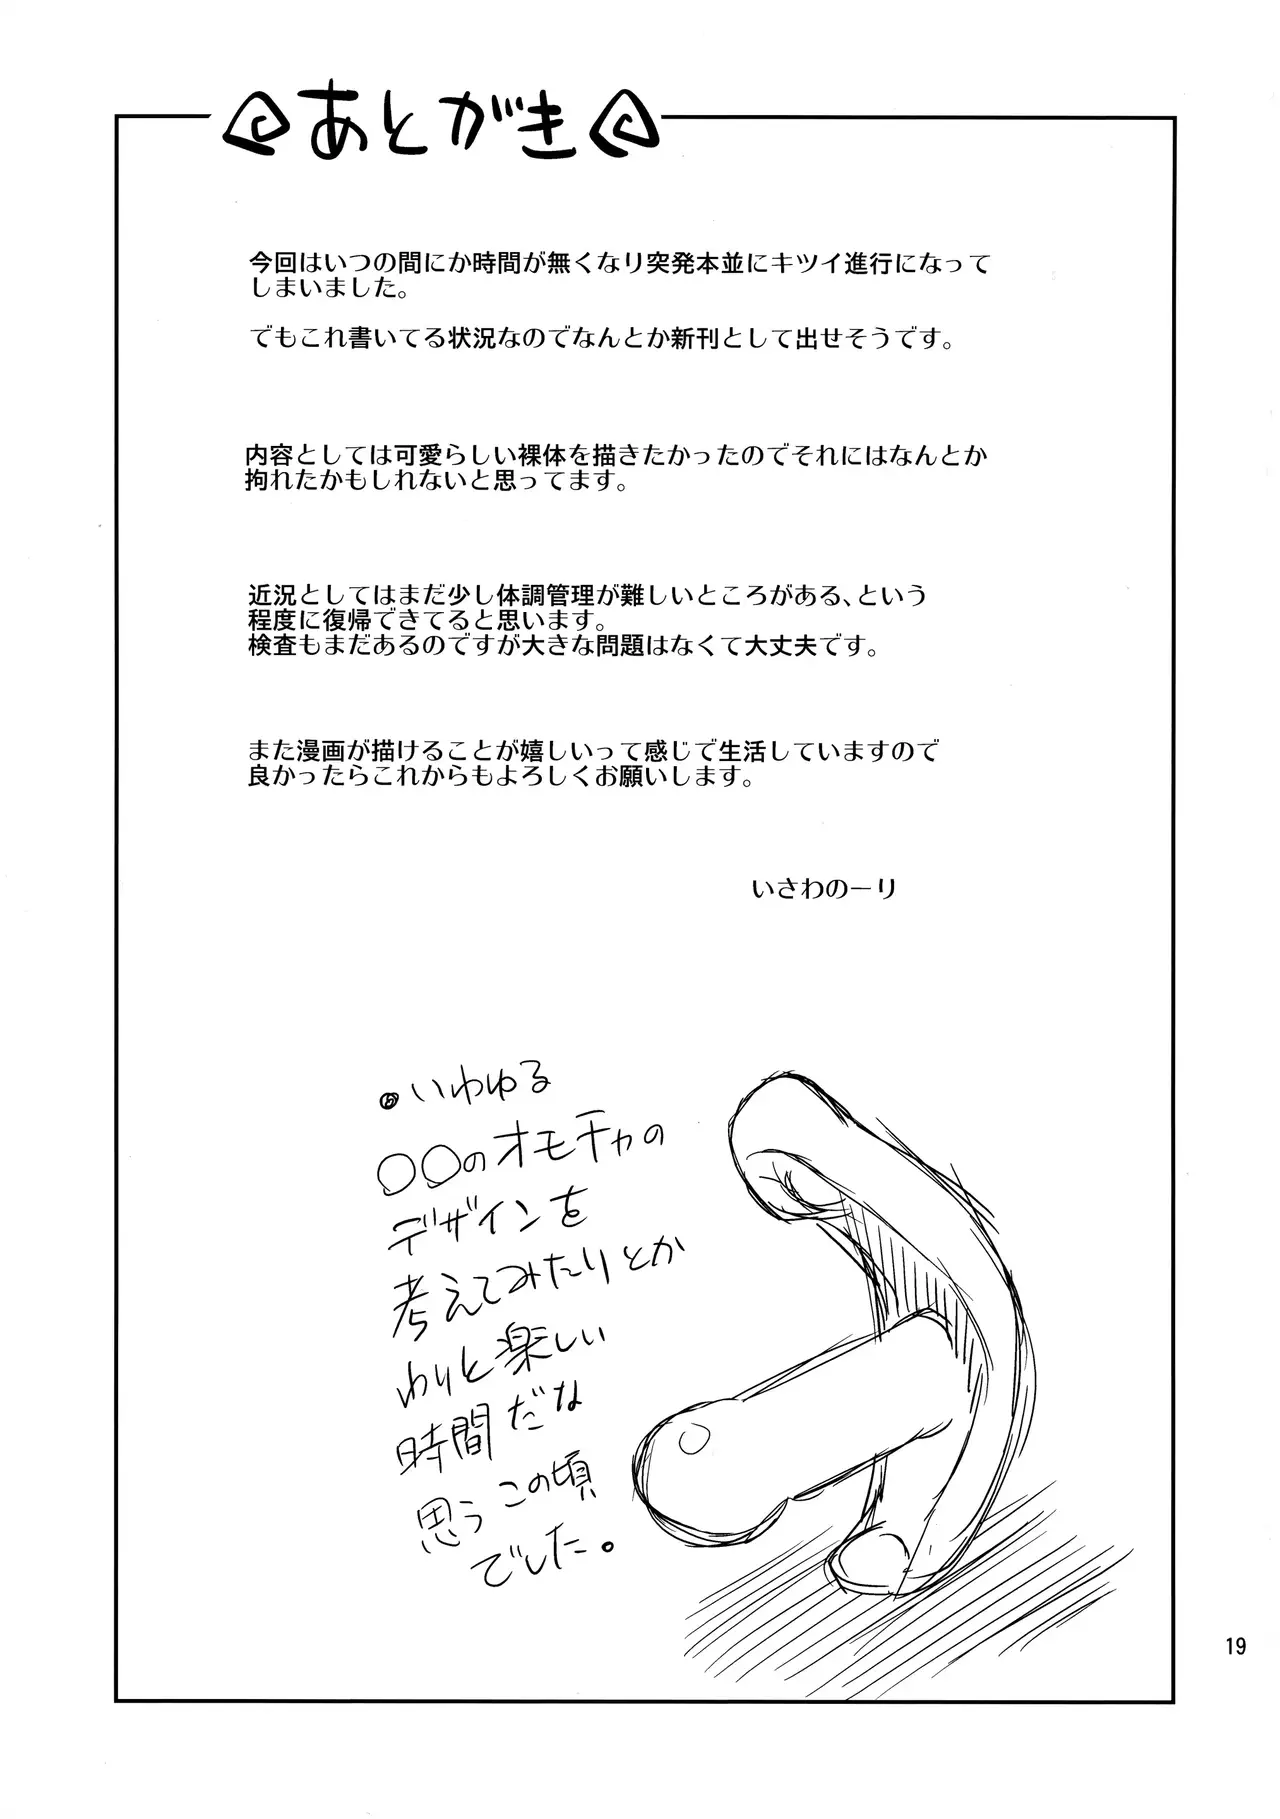 あとがき
今回はいつの間にか時間が無くなり突発本並にキツイ進行になって
しまいました。
でもこれ書いてる状況なのでなんとか新刊として出せそうです。
内容としては可愛らしい裸体を描きたかったのでそれにはなんとか
拘れたかもしれないと思ってます。
近況としてはまだ少し体調管理が難しいところがある、という
程度に復帰できてると思います。
検査もまだあるのですが大きな問題はなくて大丈夫です。
また漫画が描けることが嬉しいって感じで生活していますので
良かったらこれからもよろしくお願いします。
いさわのーり
いわゆる
○○のオモチャの
デザインを
考えてみたりとか
わりと楽しい
時間だな
思うこの頃
でした。
19